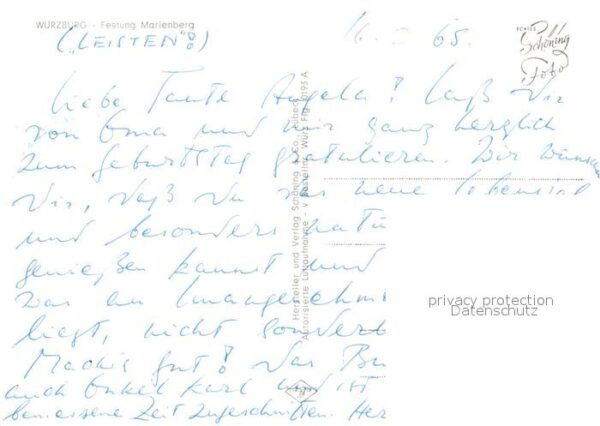 WÜRZBURG - Festung Marienberg
("LEISTEN"!)
65.
ECHTES
Schöning
Foto
Liebe Tante Angela! Laß Dir
von Oma und mir ganz herzlich
zum Geburtstag gratulieren. Wir wünschen
Dir, daß Du das neue Lebensj
und besonders
genießen kannst und
was an Unangenehm
liegt, nicht sonderl
Mach's gut! Das
auch Onkel Karl und ist
bemessene Zeit zugeschnitten. Her
Hersteller und Verlag Schöning & Co., Lübeck
Autorisierte Luftaufnahme -
privacy protection
Datenschutz